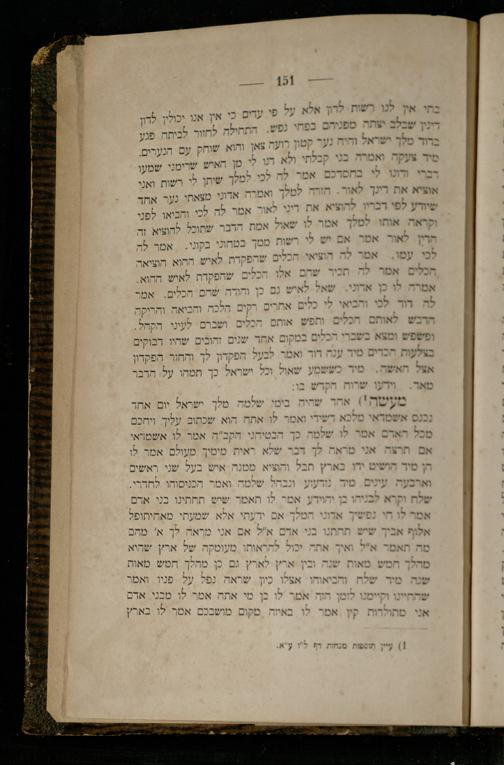 — 151 —
בתי אין לנו רשות לדון אלא על פי עדים כי אין אנו יכולין לדון
דינין שבלב יצתה מפניהם בפחי נפש. התחילה לחזור לביתה פגע
בדוד מלך ישראל והיה נער קטון רועה צאן והוא שוחק עם הנערים.
מיד צעקה ואמרה בני קבלתי ולא דנו לי מן האיש שרימני שמעו
דברי ודונו לי בחסדכם אמר לה לכי למלך שיתן לי רשות ואני
אוציא את דינך לאור. חזרה למלך ואמרה אדוני מצאתי נער אחד
שיודע לפי דבריו להוציא את דיני לאור אמר לה לכי והביאו לפני
וקראה אותו למלך אמר לו שאול אמת הדבר שתוכל להוציא זה
הדין לאור אמר אם יש לי רשות ממך בטחוני בקוני. אמר לה
לכי עמו. אמר לה הוציאי הכלים שהפקדת לאיש ההוא הוציאה
הכלים אמר לה תכיר שהם אלו הכלים שהפקדת לאיש ההוא.
אמרה לו כן אדוני. שאל לאיש גם כן והודה שהם הכלים. אמר
לה דוד לכי והביאי לי כלים אחרים רקים הלכה והביאה והריקה
הדבש לאותם הכלים ותפש אותם הכלים ושברם לעיני הקהל.
ופשפש ומצא בשברי הכלים במקום אחד שנים זהובים שהיו דבוקים
בצלעות הכדים מיד ענה דוד ואמר לבעל הפקדון לך והחזר הפקדון
אצל האשה. מיד כששמע שאול וכל ישראל כך תמהו על הדבר
מאד. וידעו שרוח הקדש בו:
מעשה¹) אחד שהיה בימי שלמה מלך ישראל יום אחד
נכנס אשמדאי מלכא דשידי ואמר לו אתה הוא שכתוב עליך ויחכם
מכל האדם אמר לו שלמה כך הבטיחני הקב״ה אמר לו אשמדאי
אם תרצה אני מראה לך דבר שלא ראית מימיך מעולם אמר לו
הן מיד הושיט ידו בארץ תבל והוציא ממנה איש בעל שני ראשים
וארבעה עינים מיד נזדעזע ונבהל שלמה ואמר הכניסוהו לחדרי.
שלח וקרא לבניהו בן יהוידע אמר לו תאמר שיש תחתינו בני אדם
אמר לו חי נפשיך אדוני המלך אם ידעתי אלא שמעתי מאחיתופל
אלוף אביך שיש תחתנו בני אדם א״ל אם אני מראה לך א׳ מהם
מה תאמר א״ל ואיך אתה יכול להראותו מעומקה של ארץ שהיא
מהלך חמש מאות שנה ובין ארץ לארץ גם כן מהלך חמש מאות
שנה מיד שלח והביאוהו אצלו כיון שראה נפל על פניו ואמר
שהחיינו וקיימנו לזמן הזה אמר לו בן מי אתה אמר לו מבני אדם
אני מתולדות קין אמר לו באיזה מקום מושבכם אמר לו בארץ
1) עיין תוספות מנחות דף ל״ז ע״א.